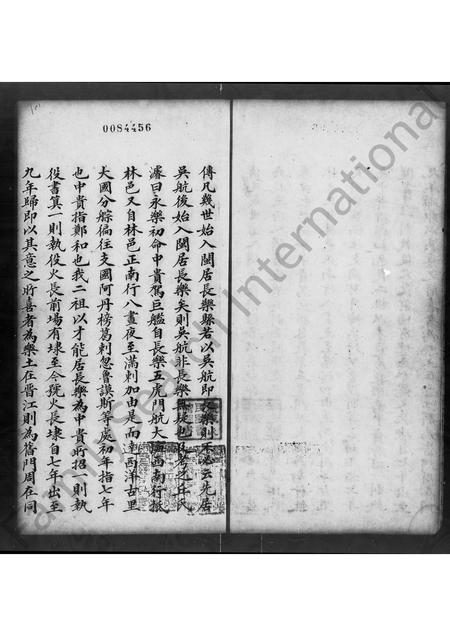 0084456
傳凡幾世始入閩居長樂縣若以吳航即長樂則不應云先居
吳航後始入閩居長樂矣則吳航非長樂
濬曰永樂初命中貴駕巨艦自長樂五虎門航大海西南行抵
林邑又自林邑正南行八晝夜至滿剌加由是而達西洋古里
大國分䑸徧往支國阿丹榜葛剌忽魯謨斯等處初年指七年
也中貴指鄭和也我二祖以才能居長樂為中貴所招一則執
役書算一則執役火長前場有埭至今號火長埭自七年出至
九年歸即以其意之所喜者為樂土在晋江則為舊門周在同
FamilySearch International